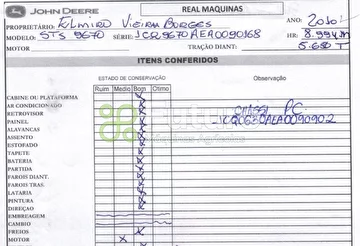 JOHN DEERE REAL MAQUINAS
PROPRIETÁRIO: Elmiro Vieira Borges ANO: 2010
MODELO: STS 9670 SÉRIE: 1CQ9670AEA0090168 HR:
MOTOR TRAÇÃO DIANT:
ITENS CONFERIDOS
ESTADO DE CONSERVAÇÃO Observação
Ruim Medio Bom Otimo
CABINE OU PLATAFORMA
AR CONDICIONADO
RETROVISOR CHASSI PC
PAINEL 1CQ0630AEA0090902
ALAVANCAS
ASSENTO
ESTOFADO
TAPETE
BATERIA
PARTIDA
FAROIS DIANT.
FAROIS TRAS.
LATARIA
PINTURA
DIREÇÃO
EMBREAGEM
CAMBIO
FREIOS
MOTOR